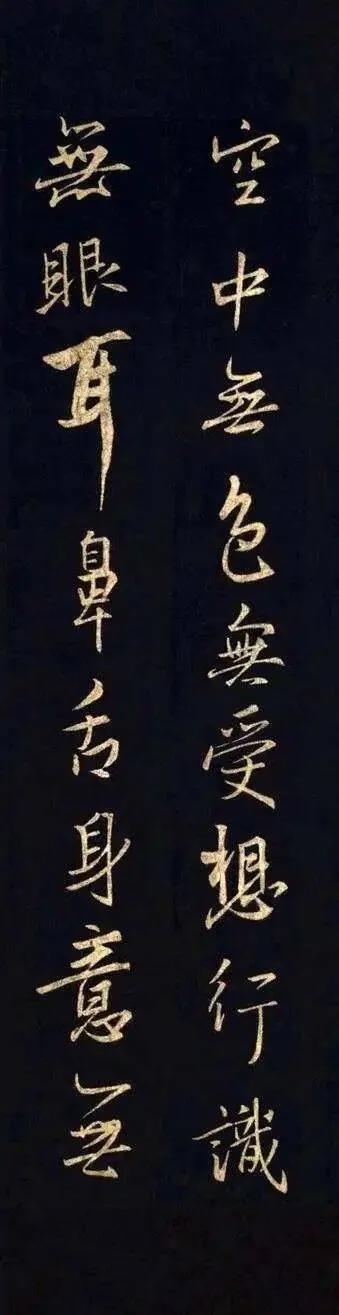 空中無色無受想行識
無眼耳鼻舌身意無